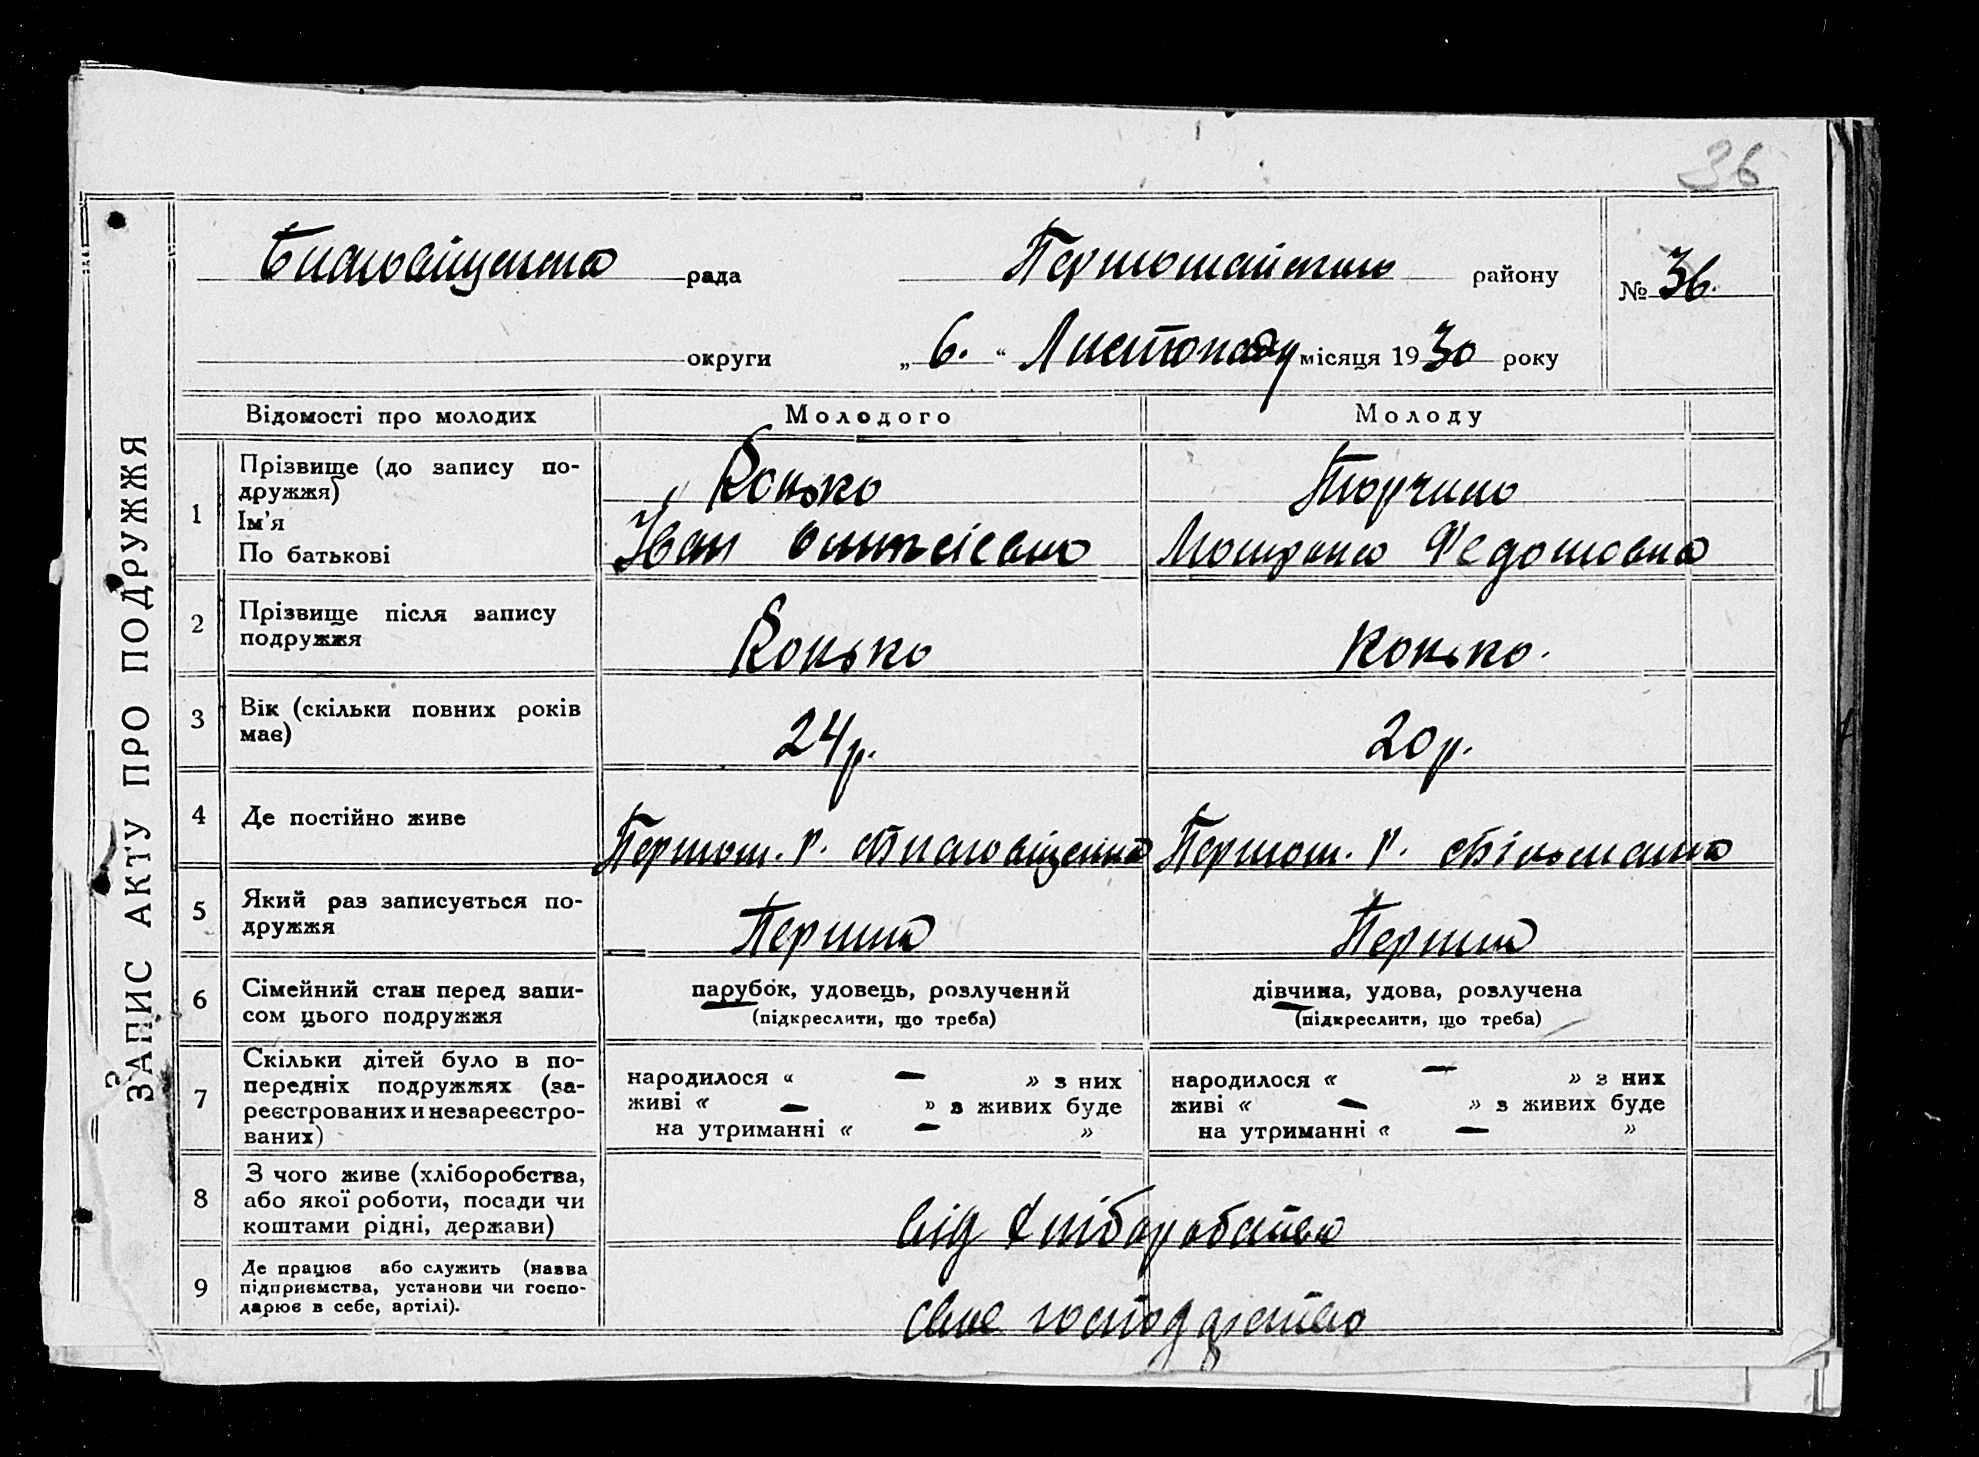 36
Благовіщенська рада Першотравенського району № 36.
округи „ 6. “ Листопаду місяця 1930 року
ЗАПИС АКТУ ПРО ПОДРУЖЖЯ
Відомості про молодих Молодого Молоду
1 Прізвище (до запису по-
дружжя) Конько
Ім'я
По батькові Іван Федотовна
2 Прізвище після запису
подружжя Конько Конько.
3 Вік (скільки повних років
має) 24 р. 20 р.
4 Де постійно живе
5 Який раз записується по-
дружжя Перший Перший
6 Сімейний стан перед запи-
сом цього подружжя
парубок, удовець, розлучений
(підкреслити, що треба)
дівчина, удова, розлучена
(підкреслити, що треба)
7 Скільки дітей було в по-
передніх подружжях (за-
реєстрованих и незареєстро-
ваних)
народилося « — » з них
живі « — » з живих буде
на утриманні « — »
народилося « — » з них
живі « — » з живих буде
на утриманні « — »
8 З чого живе (хліборобства,
або якої роботи, посади чи
коштами рідні, держави)
від хліборобства
9 Де працює або служить (назва
підприємства, установи чи госпо-
дарює в себе, артілі).
своє господарство